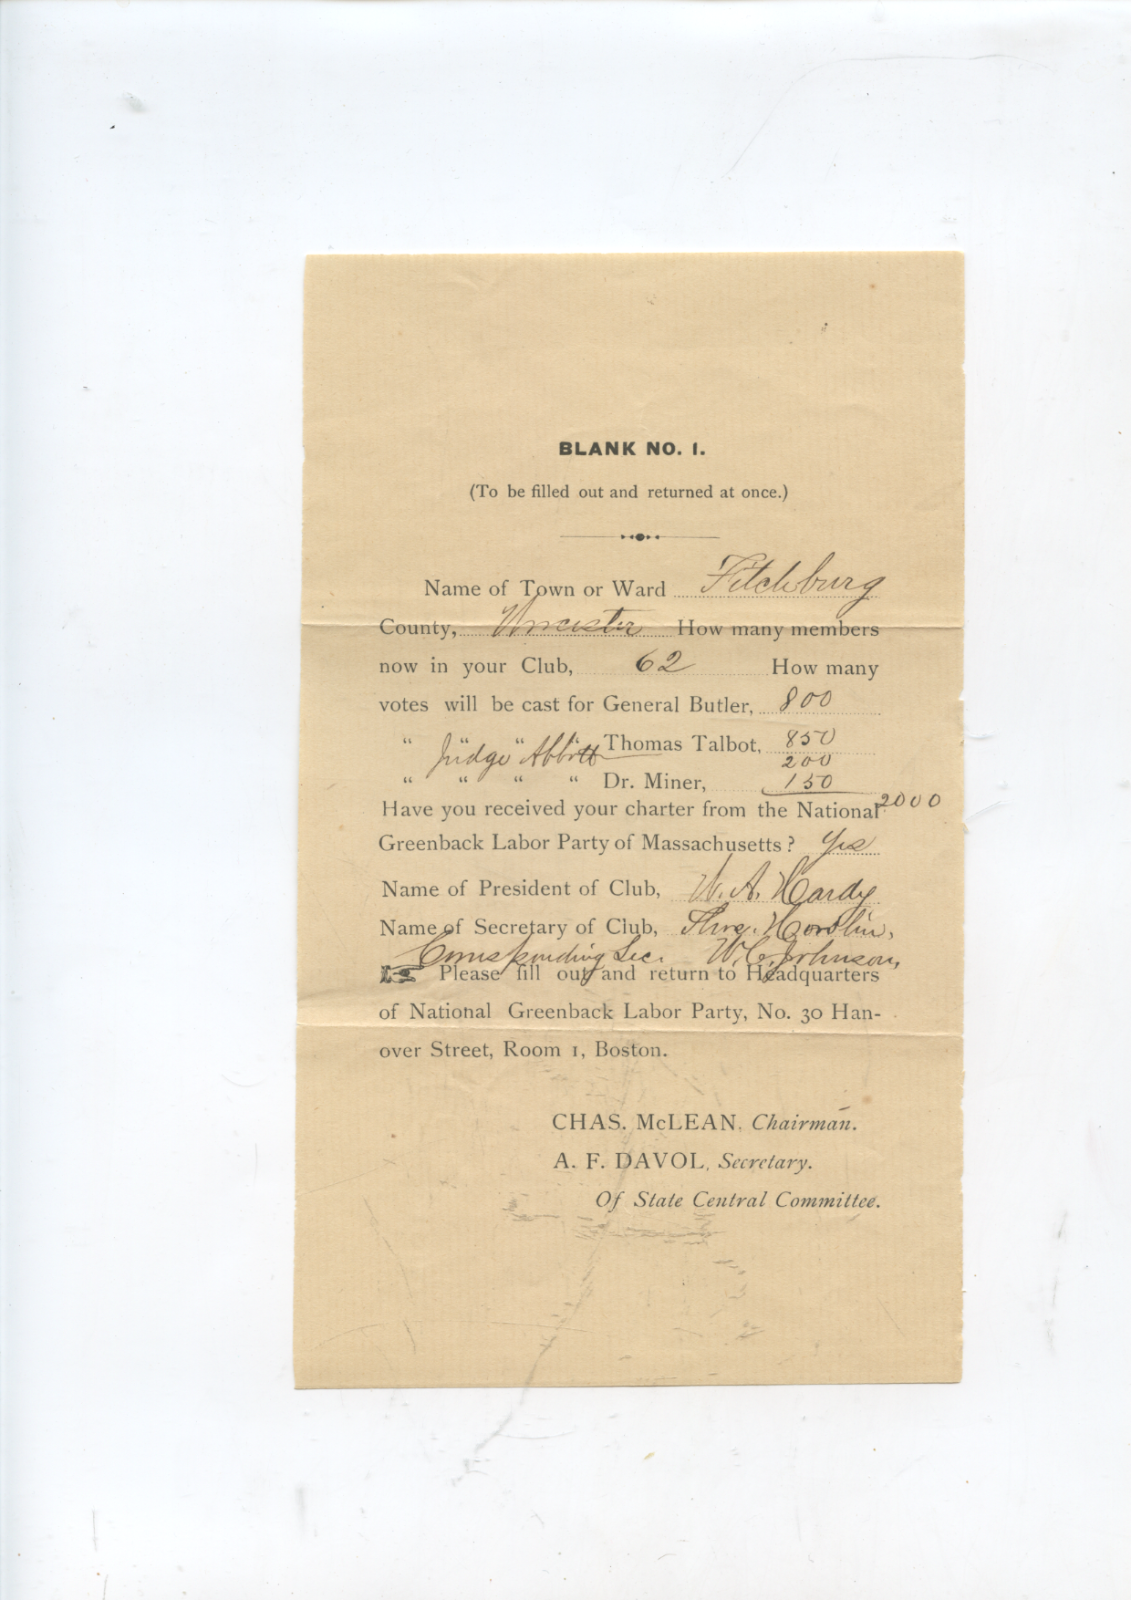 BLANK NO. 1.
(To be filled out and returned at once.)
Name of Town or Ward Fitchburg
County, Worcester How many members
now in your Club, 62 How many
votes will be cast for General Butler, 800
" " " " Thomas Talbot, 850
Judge Abbott 200
" " " " Dr. Miner, 150
2000
Have you received your charter from the National
Greenback Labor Party of Massachusetts? Yes
Name of President of Club, W. A. Hardy
Name of Secretary of Club,
Corresponding Sec. W. C. Johnson,
☞ Please fill out and return to Headquarters
of National Greenback Labor Party, No. 30 Han-
over Street, Room 1, Boston.
CHAS. McLEAN, Chairman.
A. F. DAVOL, Secretary.
Of State Central Committee.